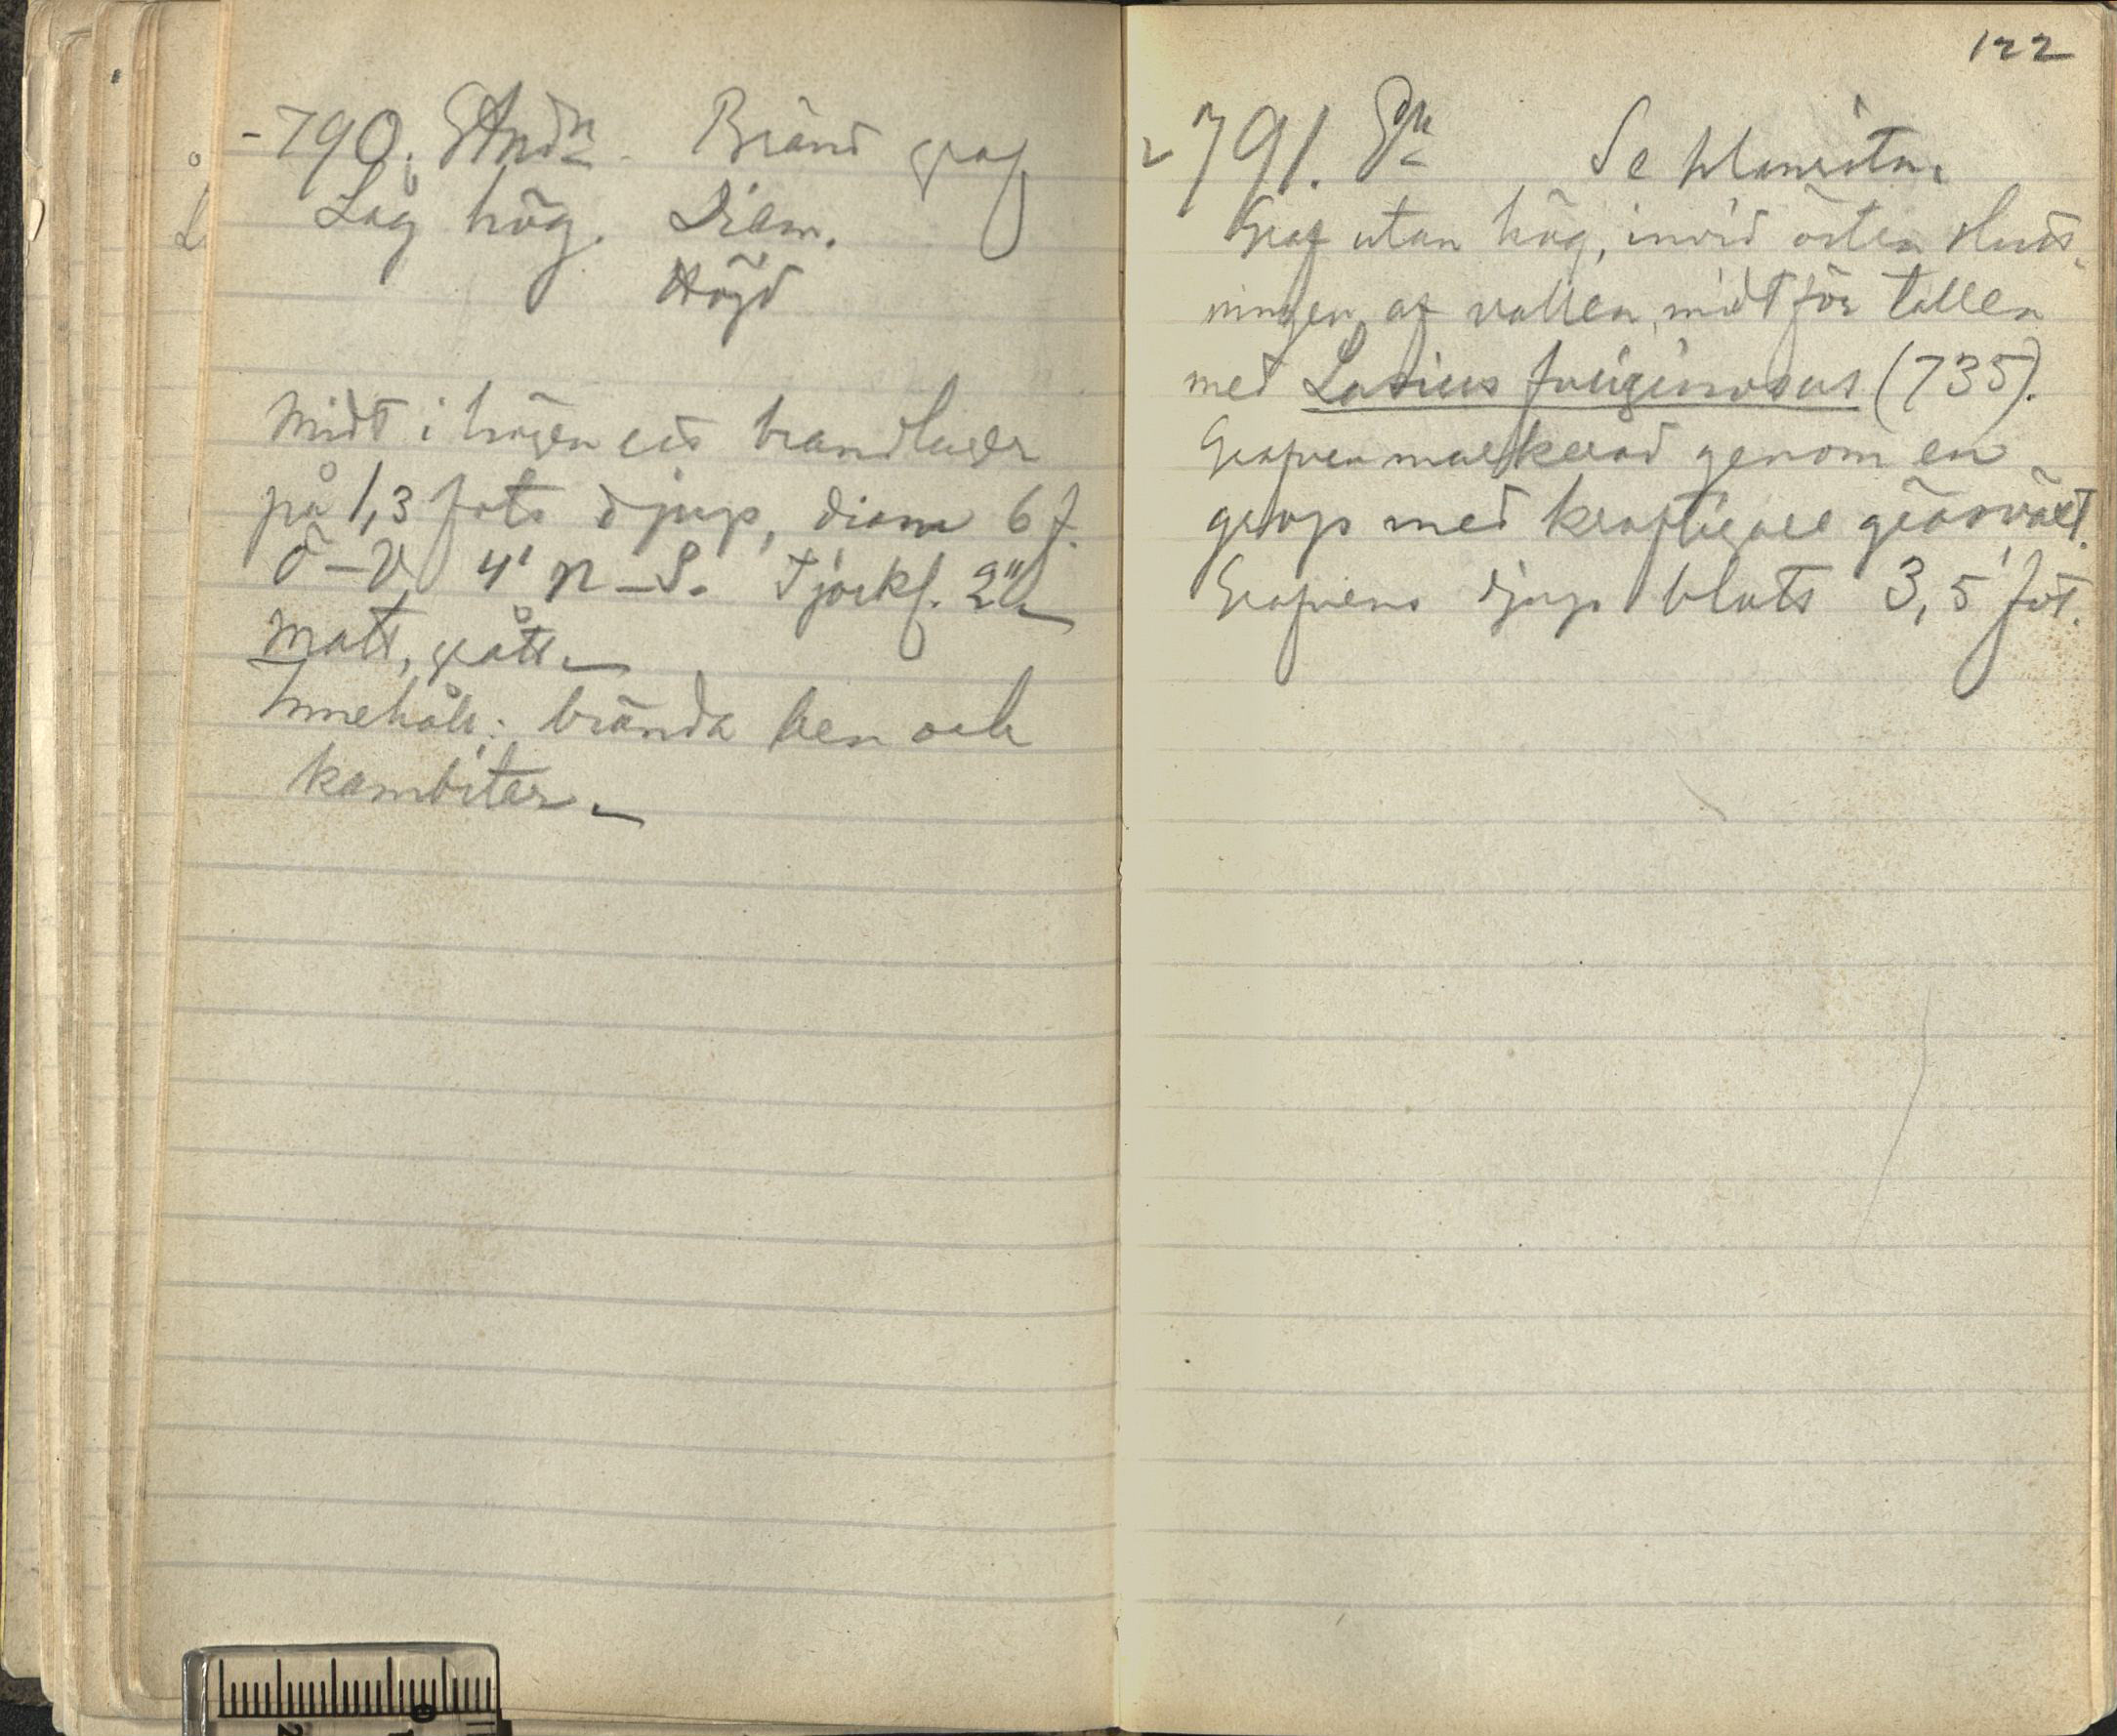 -790. And<sup>n</sup>. Bränd graf
Låg hög. Diam.
Höjd
Midt i högen ett brandlager
på 1,3 fots djup, diam 6 f.
Ö–V 4' N–S. Tjockl. 2"
Matt, grått
Innehåll: brända ben och
kambitar
122
791. Se planritn.
Graf utan hög, invid östra slutt-
ningen af vallen, midt för tallen
med Lasius fuliginosus (735).
Grafven markerad genom en
grop med kraftigare gräsväxt.
Grafvens djup blott 3,5 fot.